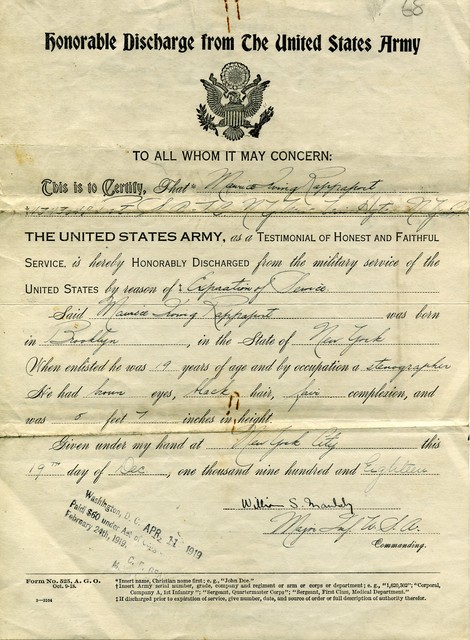 68
Honorable Discharge from The United States Army
TO ALL WHOM IT MAY CONCERN:
This is to Certify, That* Maurice Irving Rappaport
THE UNITED STATES ARMY, as a TESTIMONIAL OF HONEST AND FAITHFUL
SERVICE, is hereby HONORABLY DISCHARGED from the military service of the
UNITED STATES by reason of‡ Expiration of Service
Said Maurice Irving Rappaport was born
in Brooklyn, in the State of New York
When enlisted he was 19 years of age and by occupation a stenographer
He had brown eyes, black hair, fair complexion, and
was 5 feet 7 inches in height.
Given under my hand at New York City this
19th day of Dec, one thousand nine hundred and Eighteen
William S.
Major Inf. U.S.A.
Commanding.
Washington, D. C. APR 11 1919
Paid $60 under Act of
February 24th, 1919.
Form No. 525, A. G. O.
Oct. 9-18.
3—3164
*Insert name, Christian name first; e. g., "John Doe."
†Insert Army serial number, grade, company and regiment or arm or corps or department; e. g., "1,620,302"; "Corporal,
Company A, 1st Infantry"; "Sergeant, Quartermaster Corps"; "Sergeant, First Class, Medical Department."
‡If discharged prior to expiration of service, give number, date, and source of order or full description of authority therefor.